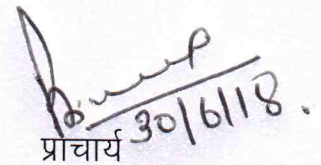 30/6/18.
प्राचार्य